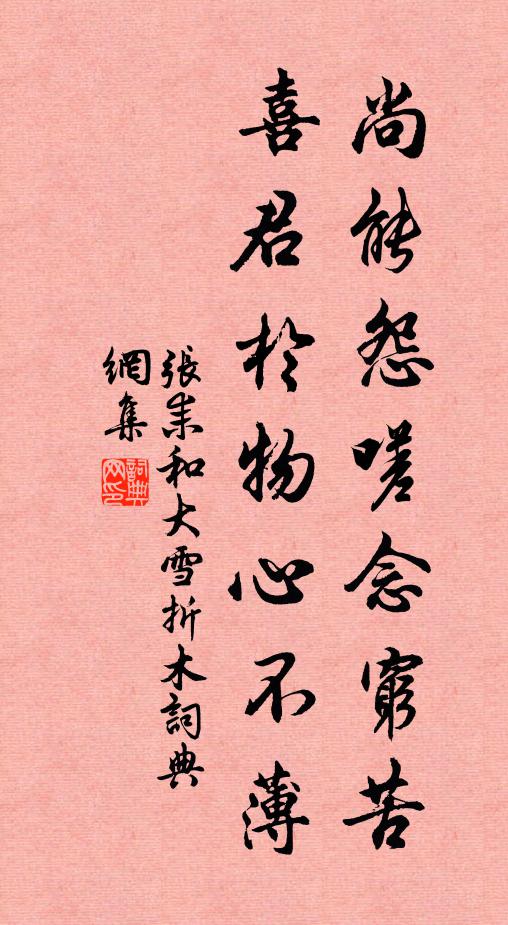 尚能怨嗟念窮苦
喜君於物心不薄
張耒和大雪折木詞典
網集
詞典網印